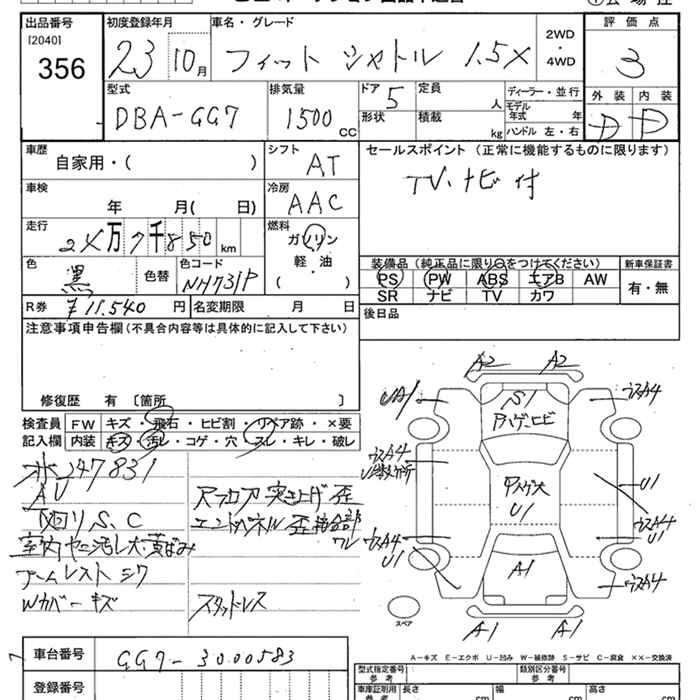 出品番号 初度登録年月 車名・グレード 2WD・4WD 評価点
[2040]
356 23 10月 フィット シャトル 1.5X 3
型式 排気量 ドア 定員 ディーラー・並行 外装 内装
DBA-GG7 1500cc 5 人 モデル年式 年 D D
形状 積載 kg ハンドル 左・右
車歴 シフト セールスポイント (正常に機能するものに限ります)
自家用・( ) AT TV、ナビ付
車検 冷房
年 月( 日) AAC
走行 燃料
2X万7千850km ガソリン
軽・油
( )
色 色コード 装備品 (純正品に限り○をつけてください) 新車保証書
黒 色替 NH731P PS PW ABS エアB AW 有・無
SR ナビ TV カワ
R券 ¥11,540円 名変期限 月 日 後日品
注意事項申告欄(不具合内容等は具体的に記入して下さい)
修復歴 有 〔箇所 〕
検査員 FW キズ・飛石・ヒビ割・リペア跡・×要
記入欄 内装 キズ・汚レ・コゲ・穴 スレ・キレ・破レ
247831
AU
下回りS、C
室内ヤニ汚レ大、黄ばみ
アームレスト シワ
Wカバーキズ
フロア 突き上げ 歪
エンドパネル 歪 接合部
ワレ
スタッドレス
A2 A2
UA1 S1 ウスA4
ウスA4 U1
U1
ウスA4 ウスA4
U1 U1
A1 ウスA4
A1 A1
スペア
A-キズ E-エクボ U-凹み W-補修跡 S-サビ C-腐食 XX-交換済
車台番号 GG7-3000583
型式指定番号 参考 類別区分番号 参考
登録番号 車庫証明用 参考 長さ cm 幅 cm 高さ cm